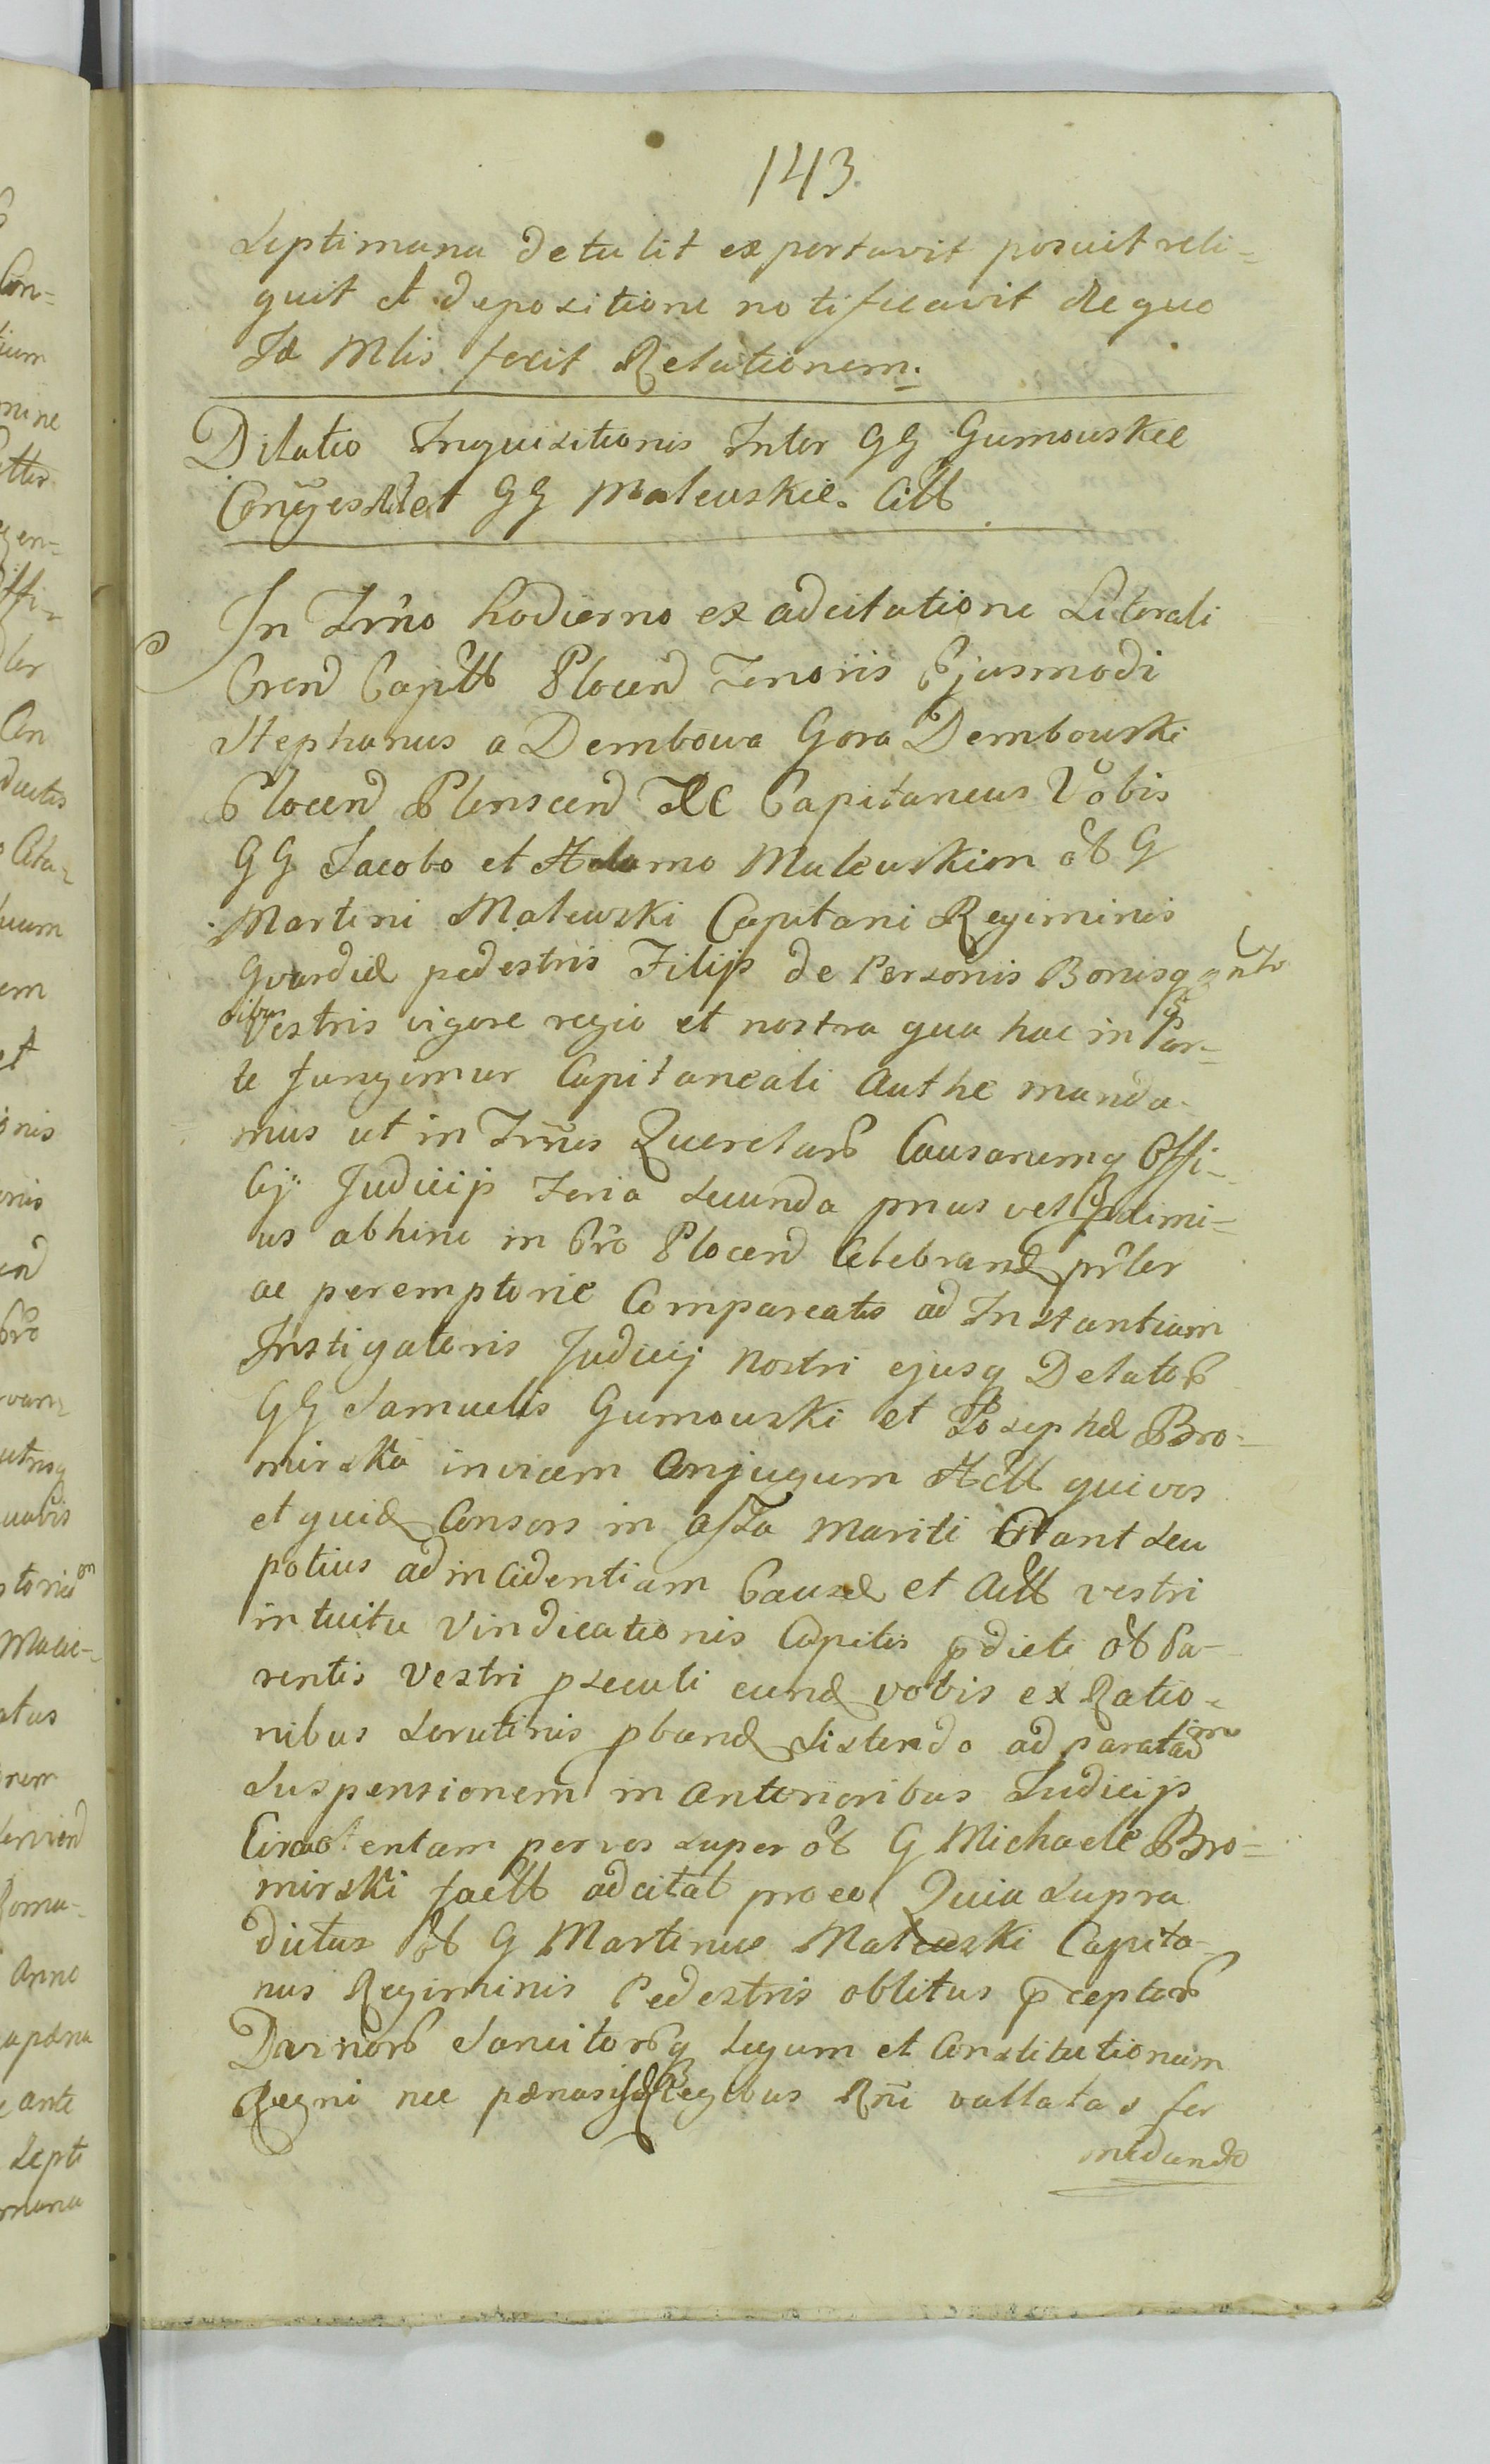 143.
Septimana detulit exportavit posuit reli-
quit et depositione notificavit de quo
Id Mlis fecit Relationem.
Dilatio Inquisitionis Inter GG Gumowskie
Conjes et GG Malewskie Citt
In Trño hodierno ex adcitatione Literali
Cren Capitt Plocen Tenoris Ejusmodi
Stephanus a Dembowa Gora Dembowski
Plocen Plonscen &c Capitaneus Vobis
GG Jacobo et Adamo Malewskim ob G
Martini Malewski Capitani Regiminis
Gvardiæ pedestris Filijs de Personis Bonisq gnlr
oibus Vestris vigore regia et nostra qua hac in Par-
te fungimur Capitaneali Authe manda-
mus ut in Trñis Querelarum Causarumq Offi-
cij Judicijs Feria Secunda pnus vel pdimi-
us abhinc in Cro Plocen Celebrand prler
ac peremptorie Compareatis ad Instantiam
Instigatoris Judicij Nostri ejusq Delator
GG Samuelis Gumowski et Josephæ Bro-
mirska invicem Conjugum Actt qui vos
et quid Consors in assa mariti Citant seu
potius ad incidentiam Causæ et Actt vestri
intuitu Vindicationis Capitis pdicti ob Pa-
rentis Vestri psecuti eund vobis ex Ratio-
nibus Scrutinis pband Sistendo ad paratam
Suspensionem in anterioribus Judicijs
Citra entam per vos super ob G Michaele Bro-
mirski factt adcitat pro eo Quia supra
dictus ob G Martinus Malewski Capita-
nus Regiminis Pedestris oblitus pceptor
Divinor Sancitorq Legum et Constitutionum
Regni nec pænas Legibus Rni vallatas for
midando
Con-